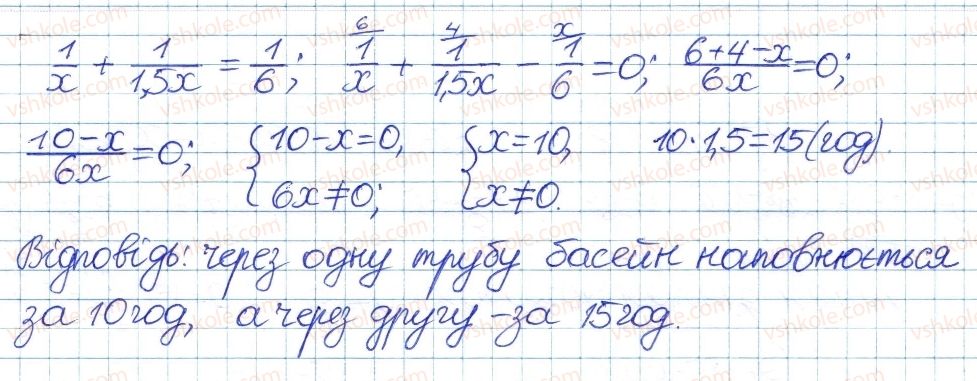 1/x + 1/1,5x = 1/6; 6 1/x + 4 1/1,5x - x 1/6 = 0; 6+4-x/6x = 0;
10-x/6x = 0; { 10-x=0, 6x≠0; { x=10, x≠0. 10·1,5=15(год).
Відповідь: через одну трубу басейн наповнюється
за 10 год, а через другу - за 15 год.